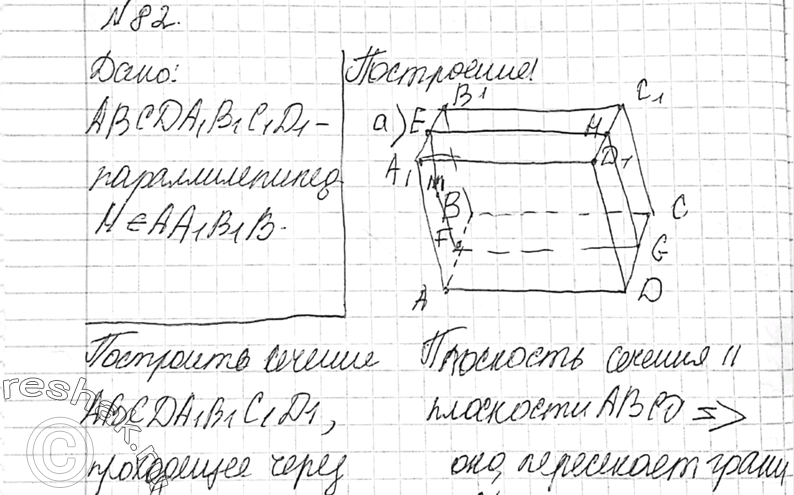 N82.
Дано:
Построение!
ABCDA₁B₁C₁D₁-
параллилепипед
M ∈ AA₁B₁B.
а)
B1
C1
E
H
A1
D1
M
B
C
F
G
A
D
Построить сечение
ABCDA₁B₁C₁D₁,
проходящее через
Плоскость сечения ||
плоскости ABCD =>
она, пересекает грани
reshak.ru
©